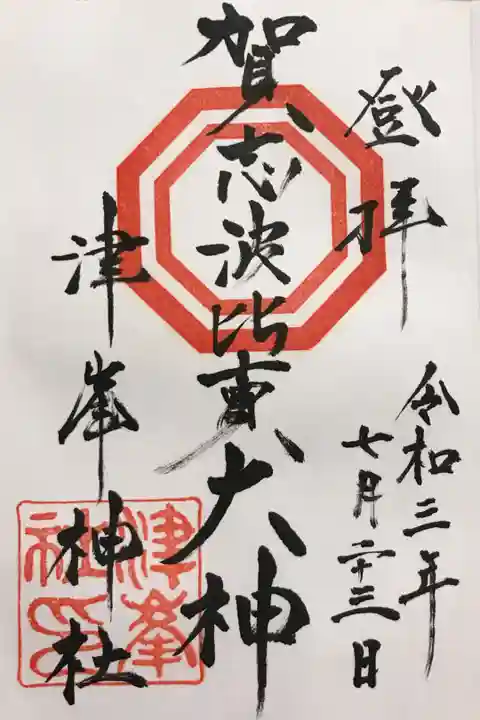 登拝
令和三年
七月二十三日
賀志波比賣大神
津峯神社
津峯
社印